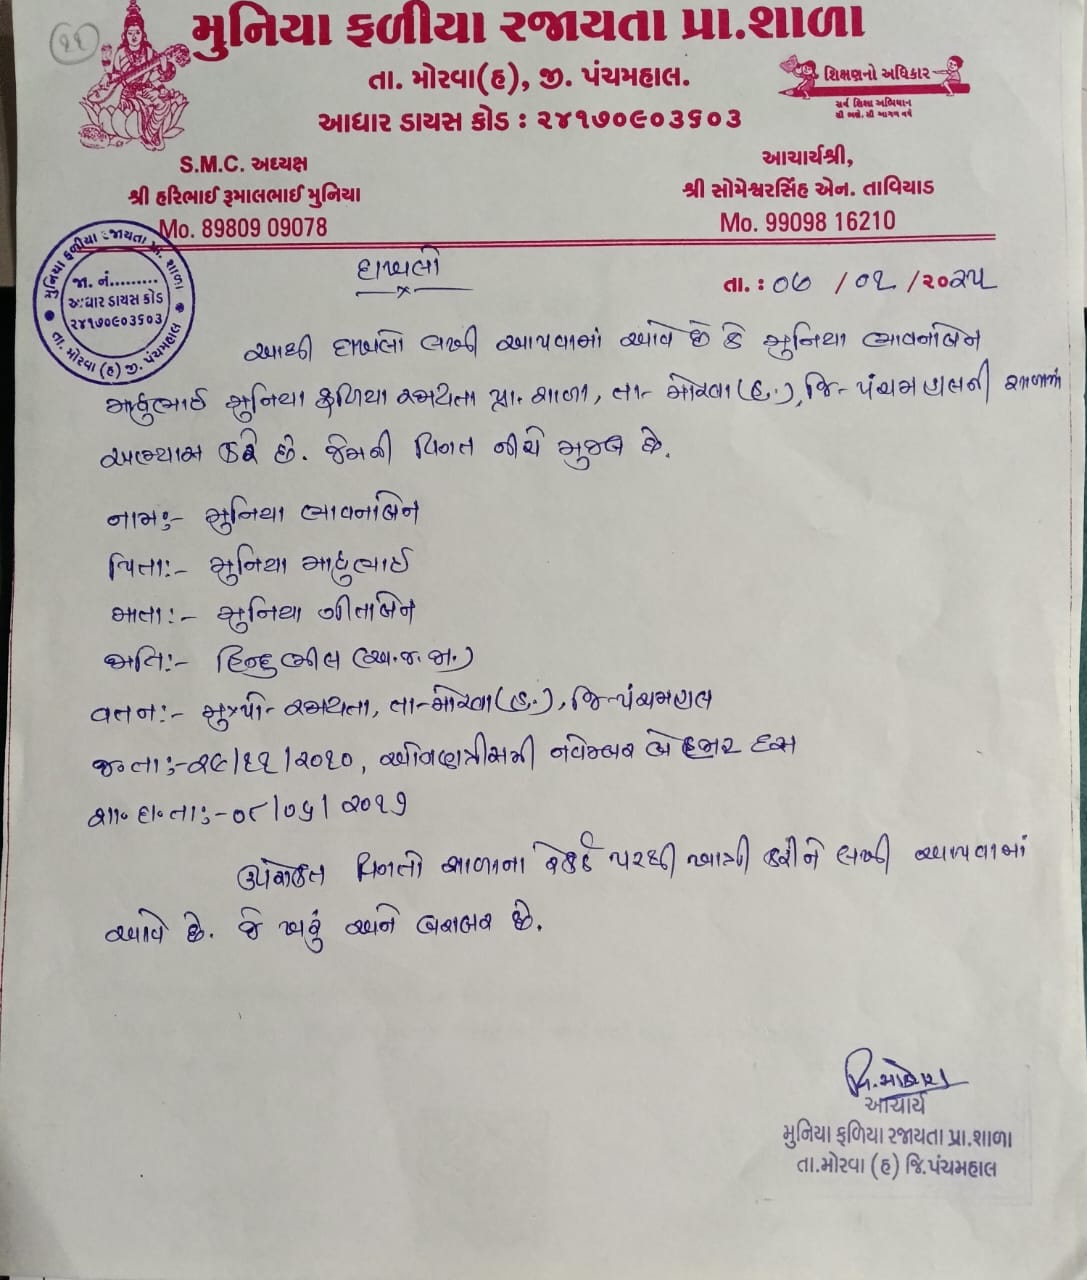 ૧૧
મુનિયા ફળીયા રજાયતા પ્રા.શાળા
તા. મોરવા(હ), જી. પંચમહાલ.
શિક્ષણનો અધિકાર
સર્વ શિક્ષા અભિયાન
સૌ ભણે, સૌ આગળ વધે
આધાર ડાયસ કોડ : ૨૪૧૭૦૯૦૩૬૦૩
S.M.C. અધ્યક્ષ
શ્રી હરિભાઈ રૂમાલભાઈ મુનિયા
Mo. 89809 09078
આચાર્યશ્રી,
શ્રી સોમેશ્વરસિંહ એન. તાવિયાડ
Mo. 99098 16210
મુનિયા ફળીયા રજાયતા પ્રા. શાળા
જા. નં.........
આધાર ડાયસ કોડ
૨૪૧૭૦૯૦૩૬૦૩
તા. મોરવા (હ) જી. પંચમહાલ
દાખલો
તા. : ૦૭ /૦૧ /૨૦૨૫
આથી દાખલો લખી આપવામાં આવે છે કે મુનિયા ભાવનાબેન
માધુભાઈ મુનિયા ફળિયા રજાયતા પ્રા. શાળા, તા- મોરવા(હ.), જિ- પંચમહાલની શાળામાં
અભ્યાસ કરે છે. જેમની વિગત નીચે મુજબ છે.
નામ:- મુનિયા ભાવનાબેન
પિતા:- મુનિયા માધુભાઈ
માતા:- મુનિયા ગીતાબેન
જાતિ:- હિન્દુ ભીલ (અ.જ.જા.)
વતન:- મુ.પો- રજાયતા, તા-મોરવા(હ.), જિ-પંચમહાલ
જ.તા:-૨૯/૧૧/૨૦૧૦, ઓગણત્રીસમી નવેમ્બર બે હજાર દસ
શા.દા.તા:-૦૮/૦૫/૨૦૧૭
ઉપરોક્ત વિગતો શાળાના રેકર્ડ પરથી ખાત્રી કરીને લખી આપવામાં
આવે છે. જે ખરું અને બરાબર છે.
આચાર્ય
મુનિયા ફળિયા રજાયતા પ્રા.શાળા
તા.મોરવા (હ) જિ.પંચમહાલ